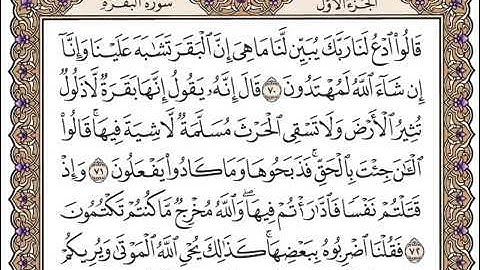 الجزء الأول سورة البقرة
قَالُوا۟ ٱدْعُ لَنَا رَبَّكَ يُبَيِّن لَّنَا مَا هِىَ إِنَّ ٱلْبَقَرَ تَشَٰبَهَ عَلَيْنَا وَإِنَّآ
إِن شَآءَ ٱللَّهُ لَمُهْتَدُونَ ٧٠ قَالَ إِنَّهُۥ يَقُولُ إِنَّهَا بَقَرَةٌ لَّا ذَلُولٌ
تُثِيرُ ٱلْأَرْضَ وَلَا تَسْقِى ٱلْحَرْثَ مُسَلَّمَةٌ لَّا شِيَةَ فِيهَا ۚ قَالُوا۟
ٱلْـَٰٔنَ جِئْتَ بِٱلْحَقِّ ۚ فَذَبَحُوهَا وَمَا كَادُوا۟ يَفْعَلُونَ ٧١ وَإِذْ
قَتَلْتُمْ نَفْسًا فَٱدَّٰرَْٰٔتُمْ فِيهَا ۖ وَٱللَّهُ مُخْرِجٌ مَّا كُنتُمْ تَكْتُمُونَ
٧٢ فَقُلْنَا ٱضْرِبُوهُ بِبَعْضِهَا ۚ كَذَٰلِكَ يُحْىِ ٱللَّهُ ٱلْمَوْتَىٰ وَيُرِيكُمْ